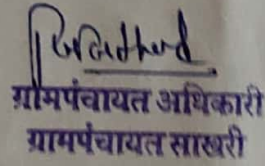 ग्रामपंचायत अधिकारी
ग्रामपंचायत साखरी